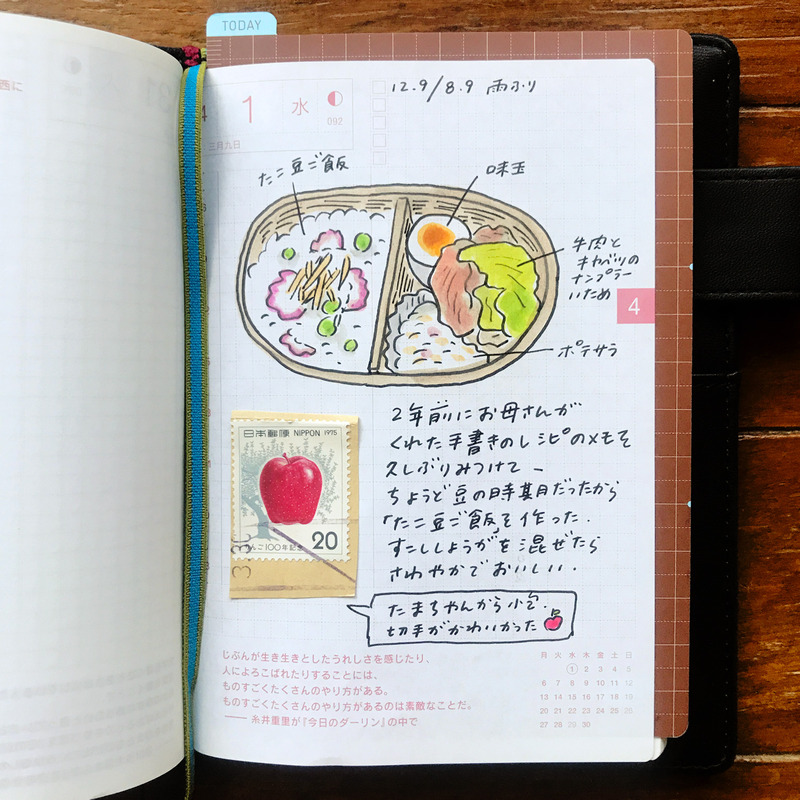 TODAY
12.9/8.9 雨ふり
1 水
092
三月九日
たこ豆ご飯
味玉
牛肉と
キャベツの
ナンプラー
いため
4
ポテサラ
2年前にお母さんが
くれた手書きのレシピのメモを
久しぶりみつけて ー
ちょうど豆の時期だったから
「たこ豆ご飯」を作った.
すこししょうがを混ぜたら
さわやかでおいしい.
日本郵便 NIPPON 1975
りんご100年記念 20
たまちゃんから小包.
切手がかわいかった
じぶんが生き生きとしたうれしさを感じたり、
人によろこばれたりすることには、
ものすごくたくさんのやり方がある。
ものすごくたくさんのやり方があるのは素敵なことだ。
―― 糸井重里が『今日のダーリン』の中で
月 火 水 木 金 土 日
1 2 3 4 5
6 7 8 9 10 11 12
13 14 15 16 17 18 19
20 21 22 23 24 25 26
27 28 29 30